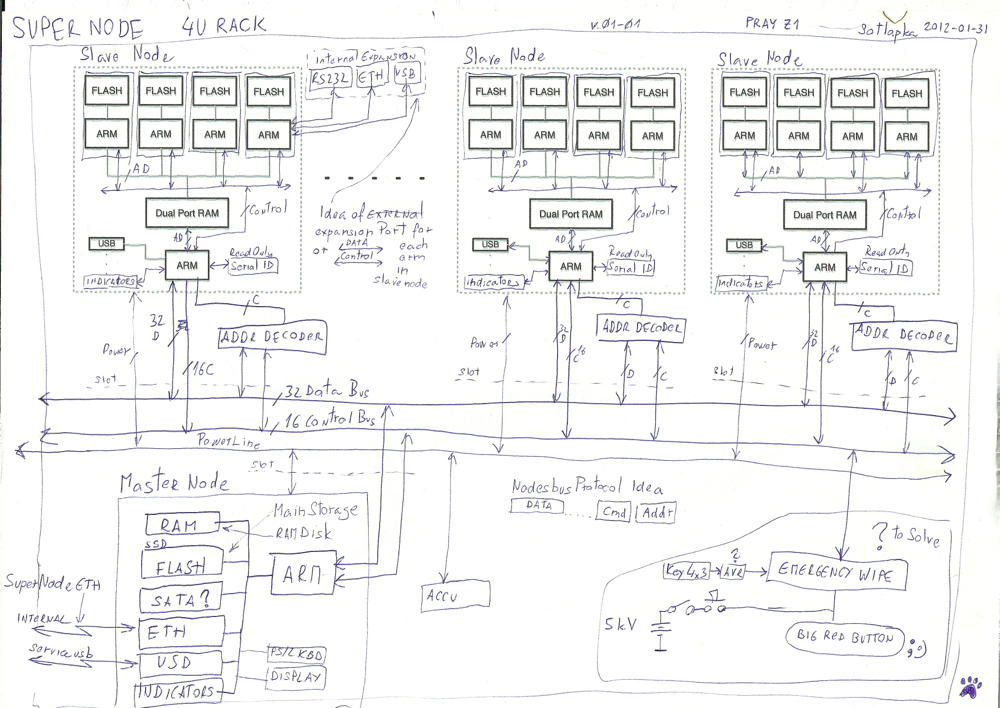 SUPER NODE 4U RACK v.01-01 PRAY Z1 2012-01-31
Slave Node
FLASH FLASH FLASH FLASH
ARM ARM ARM ARM
AD
Dual Port RAM
Control
AD
USB
ARM
Read Only
Serial ID
INDICATORS
C
32
D
ADDR DECODER
Power
16C
slot
Internal EXPANSION
RS232 ETH USB
Idea of EXTERNAL
expansion Port for
or DATA each
Control arm
in
slave node
Slave Node
FLASH FLASH FLASH FLASH
ARM ARM ARM ARM
AD
Dual Port RAM
Control
AD
USB
ARM
Read Only
Serial ID
Indicators
C
ADDR DECODER
Power
32
D
16
C
D
C
slot
Slave Node
FLASH FLASH FLASH FLASH
ARM ARM ARM ARM
AD
Dual Port RAM
Control
AD
USB
ARM
Read Only
Serial ID
Indicators
C
ADDR DECODER
Power
32
D
16
C
D
C
slot
32 Data Bus
16 Control Bus
PowerLine
slot
Master Node
RAM
Main Storage
RAM Disk
SSD
FLASH
ARM
SATA?
ETH
USD
INDICATORS
PS/2 KBD
DISPLAY
SuperNode ETH
INTERNAL
service usb
ACCU
Nodesbus Protocol Idea
DATA ...... Cmd Addr
? to Solve
Key 4x3
?
AVR
EMERGENCY WIPE
5kV
BIG RED BUTTON ;)